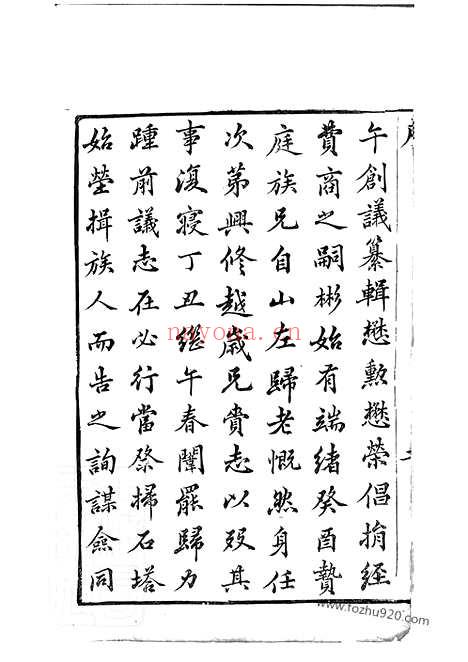 午創議纂輯懋勲懋榮倡捐經
費商之嗣彬始有端緒癸酉贄
庭族兄自山左歸老慨然身任
次第興修越歲兄賫志以歿其
事浚寢丁丑繼午春闈罷歸力
踵前議志在必行當祭掃石塔
始塋揖族人而告之詢謀僉同
nuyona.cn
www.fozhu920.com